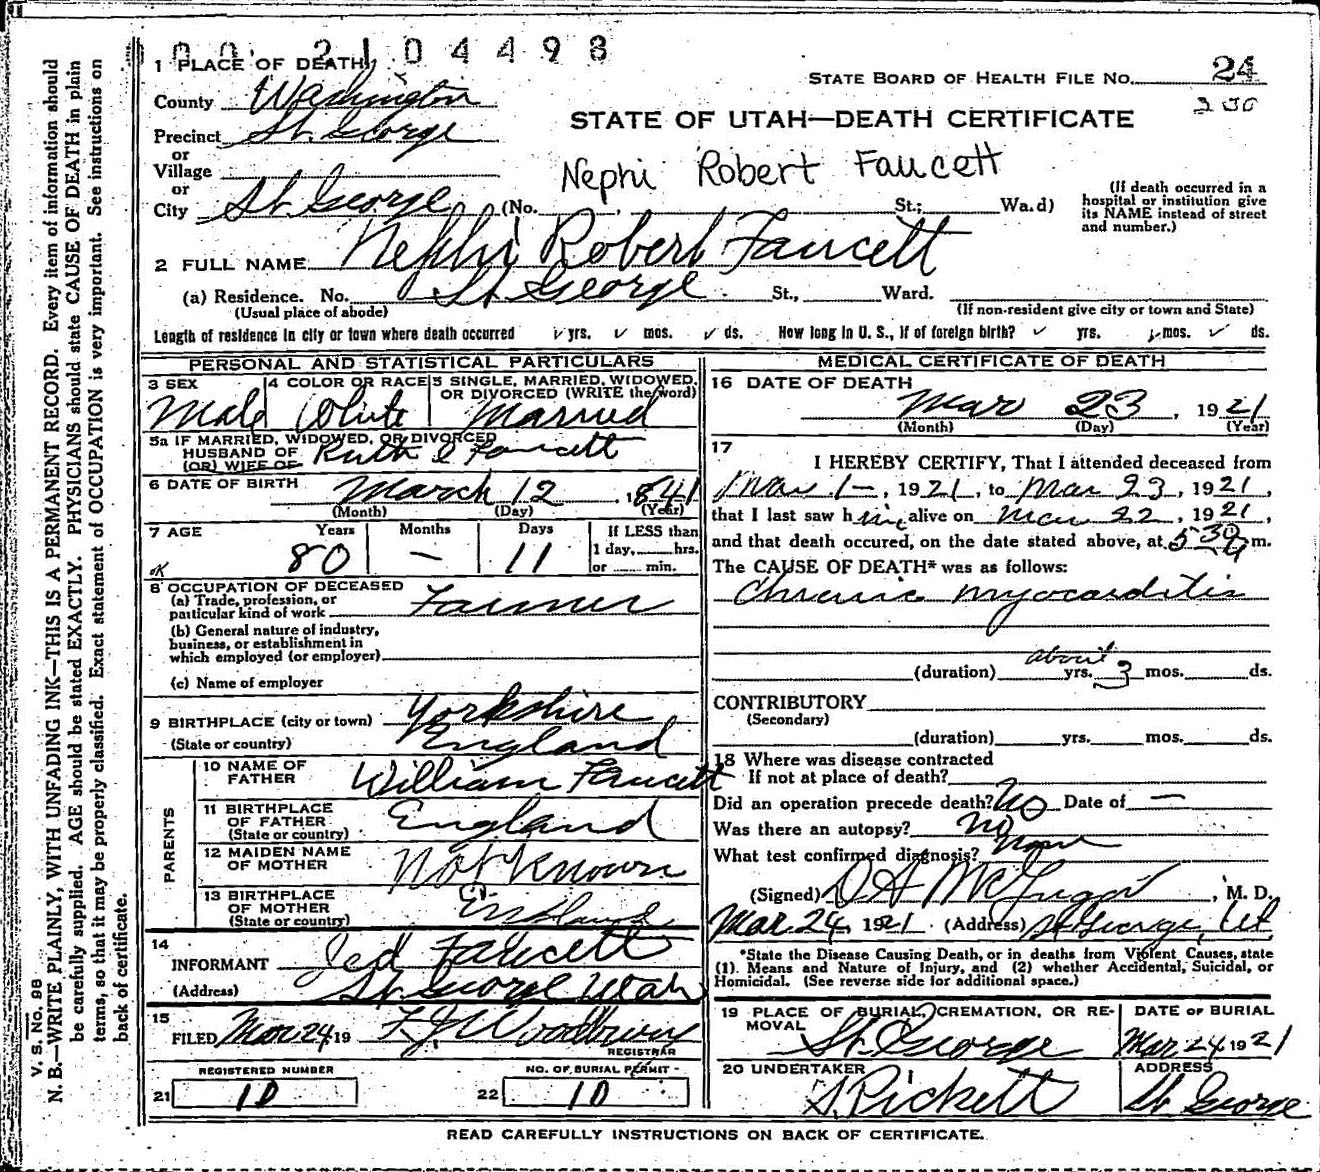 00 2104498
1 PLACE OF DEATH
STATE BOARD OF HEALTH FILE No. 24
County Washington
230
Precinct St. George
STATE OF UTAH—DEATH CERTIFICATE
or
Village
Nephi Robert Faucett
or
City St. George (No. St.; Ward)
(If death occurred in a
hospital or institution give
its NAME instead of street
and number.)
2 FULL NAME Nephi Robert Faucett
(a) Residence. No. St George. St., Ward.
(Usual place of abode)
(If non-resident give city or town and State)
Length of residence in city or town where death occurred yrs. mos. ds. How long in U. S., if of foreign birth? yrs. mos. ds.
PERSONAL AND STATISTICAL PARTICULARS
3 SEX
Male
4 COLOR OR RACE
White
5 SINGLE, MARRIED, WIDOWED,
OR DIVORCED (WRITE the word)
Married
5a IF MARRIED, WIDOWED, OR DIVORCED
HUSBAND OF Ruth Faucett
(OR) WIFE OF
6 DATE OF BIRTH March 12, 1841
(Month) (Day) (Year)
7 AGE Years Months Days
80 — 11
If LESS than
1 day, hrs.
or min.
OK
8 OCCUPATION OF DECEASED
(a) Trade, profession, or
particular kind of work Farmer
(b) General nature of industry,
business, or establishment in
which employed (or employer)
(c) Name of employer
9 BIRTHPLACE (city or town) Yorkshire
(State or country) England
PARENTS
10 NAME OF
FATHER William Faucett
11 BIRTHPLACE
OF FATHER England
(State or country)
12 MAIDEN NAME
OF MOTHER Not Known
13 BIRTHPLACE
OF MOTHER England
(State or country)
14
INFORMANT Jed Faucett
(Address) St. George Utah
15
FILED Mar 24 19 F J Woodbury
REGISTRAR
REGISTERED NUMBER
21 10
NO. OF BURIAL PERMIT
22 10
MEDICAL CERTIFICATE OF DEATH
16 DATE OF DEATH
Mar 23, 1921
(Month) (Day) (Year)
17
I HEREBY CERTIFY, That I attended deceased from
Mar 1-, 1921, to Mar 23, 1921,
that I last saw him alive on Mar 22, 1921,
and that death occured, on the date stated above, at 5 30 a m.
The CAUSE OF DEATH* was as follows:
Chronic myocarditis
about
(duration) yrs. 3 mos. ds.
CONTRIBUTORY
(Secondary)
(duration) yrs. mos. ds.
18 Where was disease contracted
If not at place of death?
Did an operation precede death? No Date of —
Was there an autopsy? No
What test confirmed diagnosis? None
(Signed) McGregor, M. D.
Mar. 24, 1921. (Address) St George, Ut
*State the Disease Causing Death, or in deaths from Violent Causes, state
(1). Means and Nature of Injury, and (2) whether Accidental, Suicidal, or
Homicidal. (See reverse side for additional space.)
19 PLACE OF BURIAL, CREMATION, OR RE-
MOVAL St. George
DATE OF BURIAL
Mar 24 1921
20 UNDERTAKER
Pickett
ADDRESS
St George
READ CAREFULLY INSTRUCTIONS ON BACK OF CERTIFICATE.
V. S. No. 98
N. B.—WRITE PLAINLY, WITH UNFADING INK—THIS IS A PERMANENT RECORD. Every item of information should
be carefully supplied. AGE should be stated EXACTLY. PHYSICIANS should state CAUSE OF DEATH in plain
terms, so that it may be properly classified. Exact statement of OCCUPATION is very important. See instructions on
back of certificate.